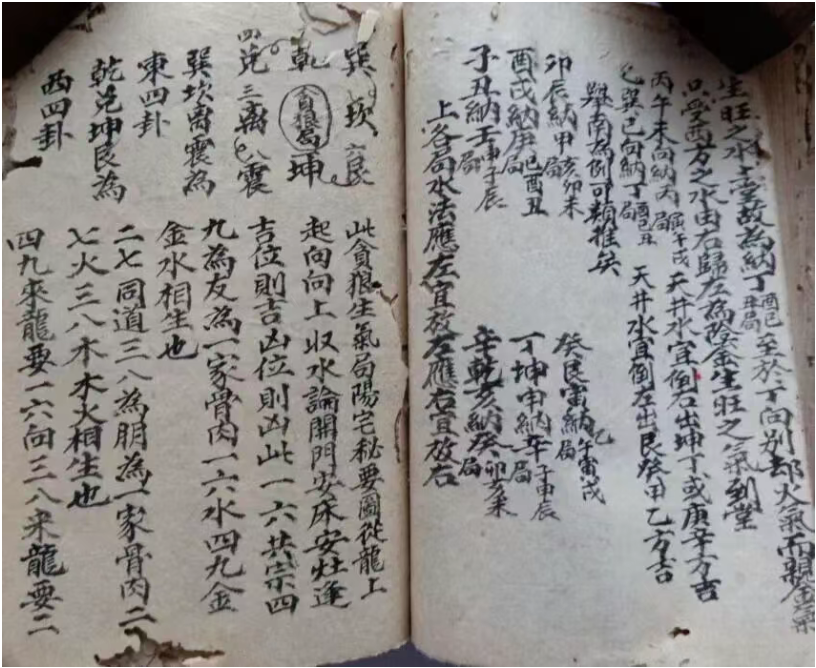 生旺之水上堂故為納丁酉巳丑局至於丁向別却火氣而親金氣
只受西方之水由右歸左為陰金生旺之氣到堂
丙午未向納丙局寅午戌天井水宜倒右出坤丁或庚辛方吉
乙巽巳向納丁局酉巳丑天井水宜倒左出艮癸甲乙方吉
舉南為例可類推矣
卯辰納甲局亥卯未 癸艮寅納乙局午寅戌
酉戌納庚局巳酉丑 丁坤申納辛局子申辰
子丑納壬局申子辰 辛乾亥納癸局卯亥未
上各局水法應左宜放左應右宜放右
巽 坎 六艮
乾 貪狼局 坤
四兌 三離 八震
巽坎離震為
東四卦
乾兌坤艮為
西四卦
此貪狼生氣局陽宅秘要圖從龍上
起向向上收水論開門安床安灶逢
吉位則吉凶位則凶此一六共宗四
九為友為一家骨肉一六水四九金
金水相生也
二七同道三八為朋為一家骨肉二
七火三八木木火相生也
四九來龍要一六向三八来龍要二